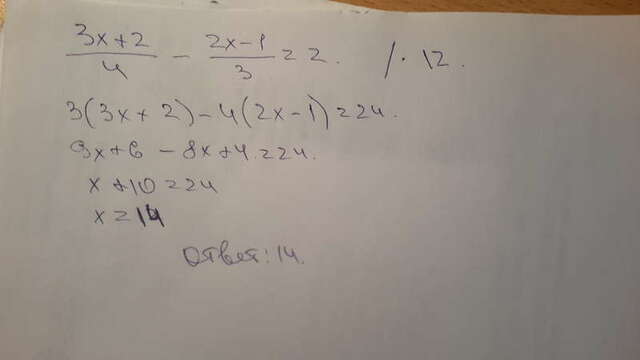 3x+2/4 - 2x-1/3 = 2. /·12.
3(3x+2)-4(2x-1)=24.
9x+6-8x+4=24.
x+10=24
x=14
Ответ: 14.